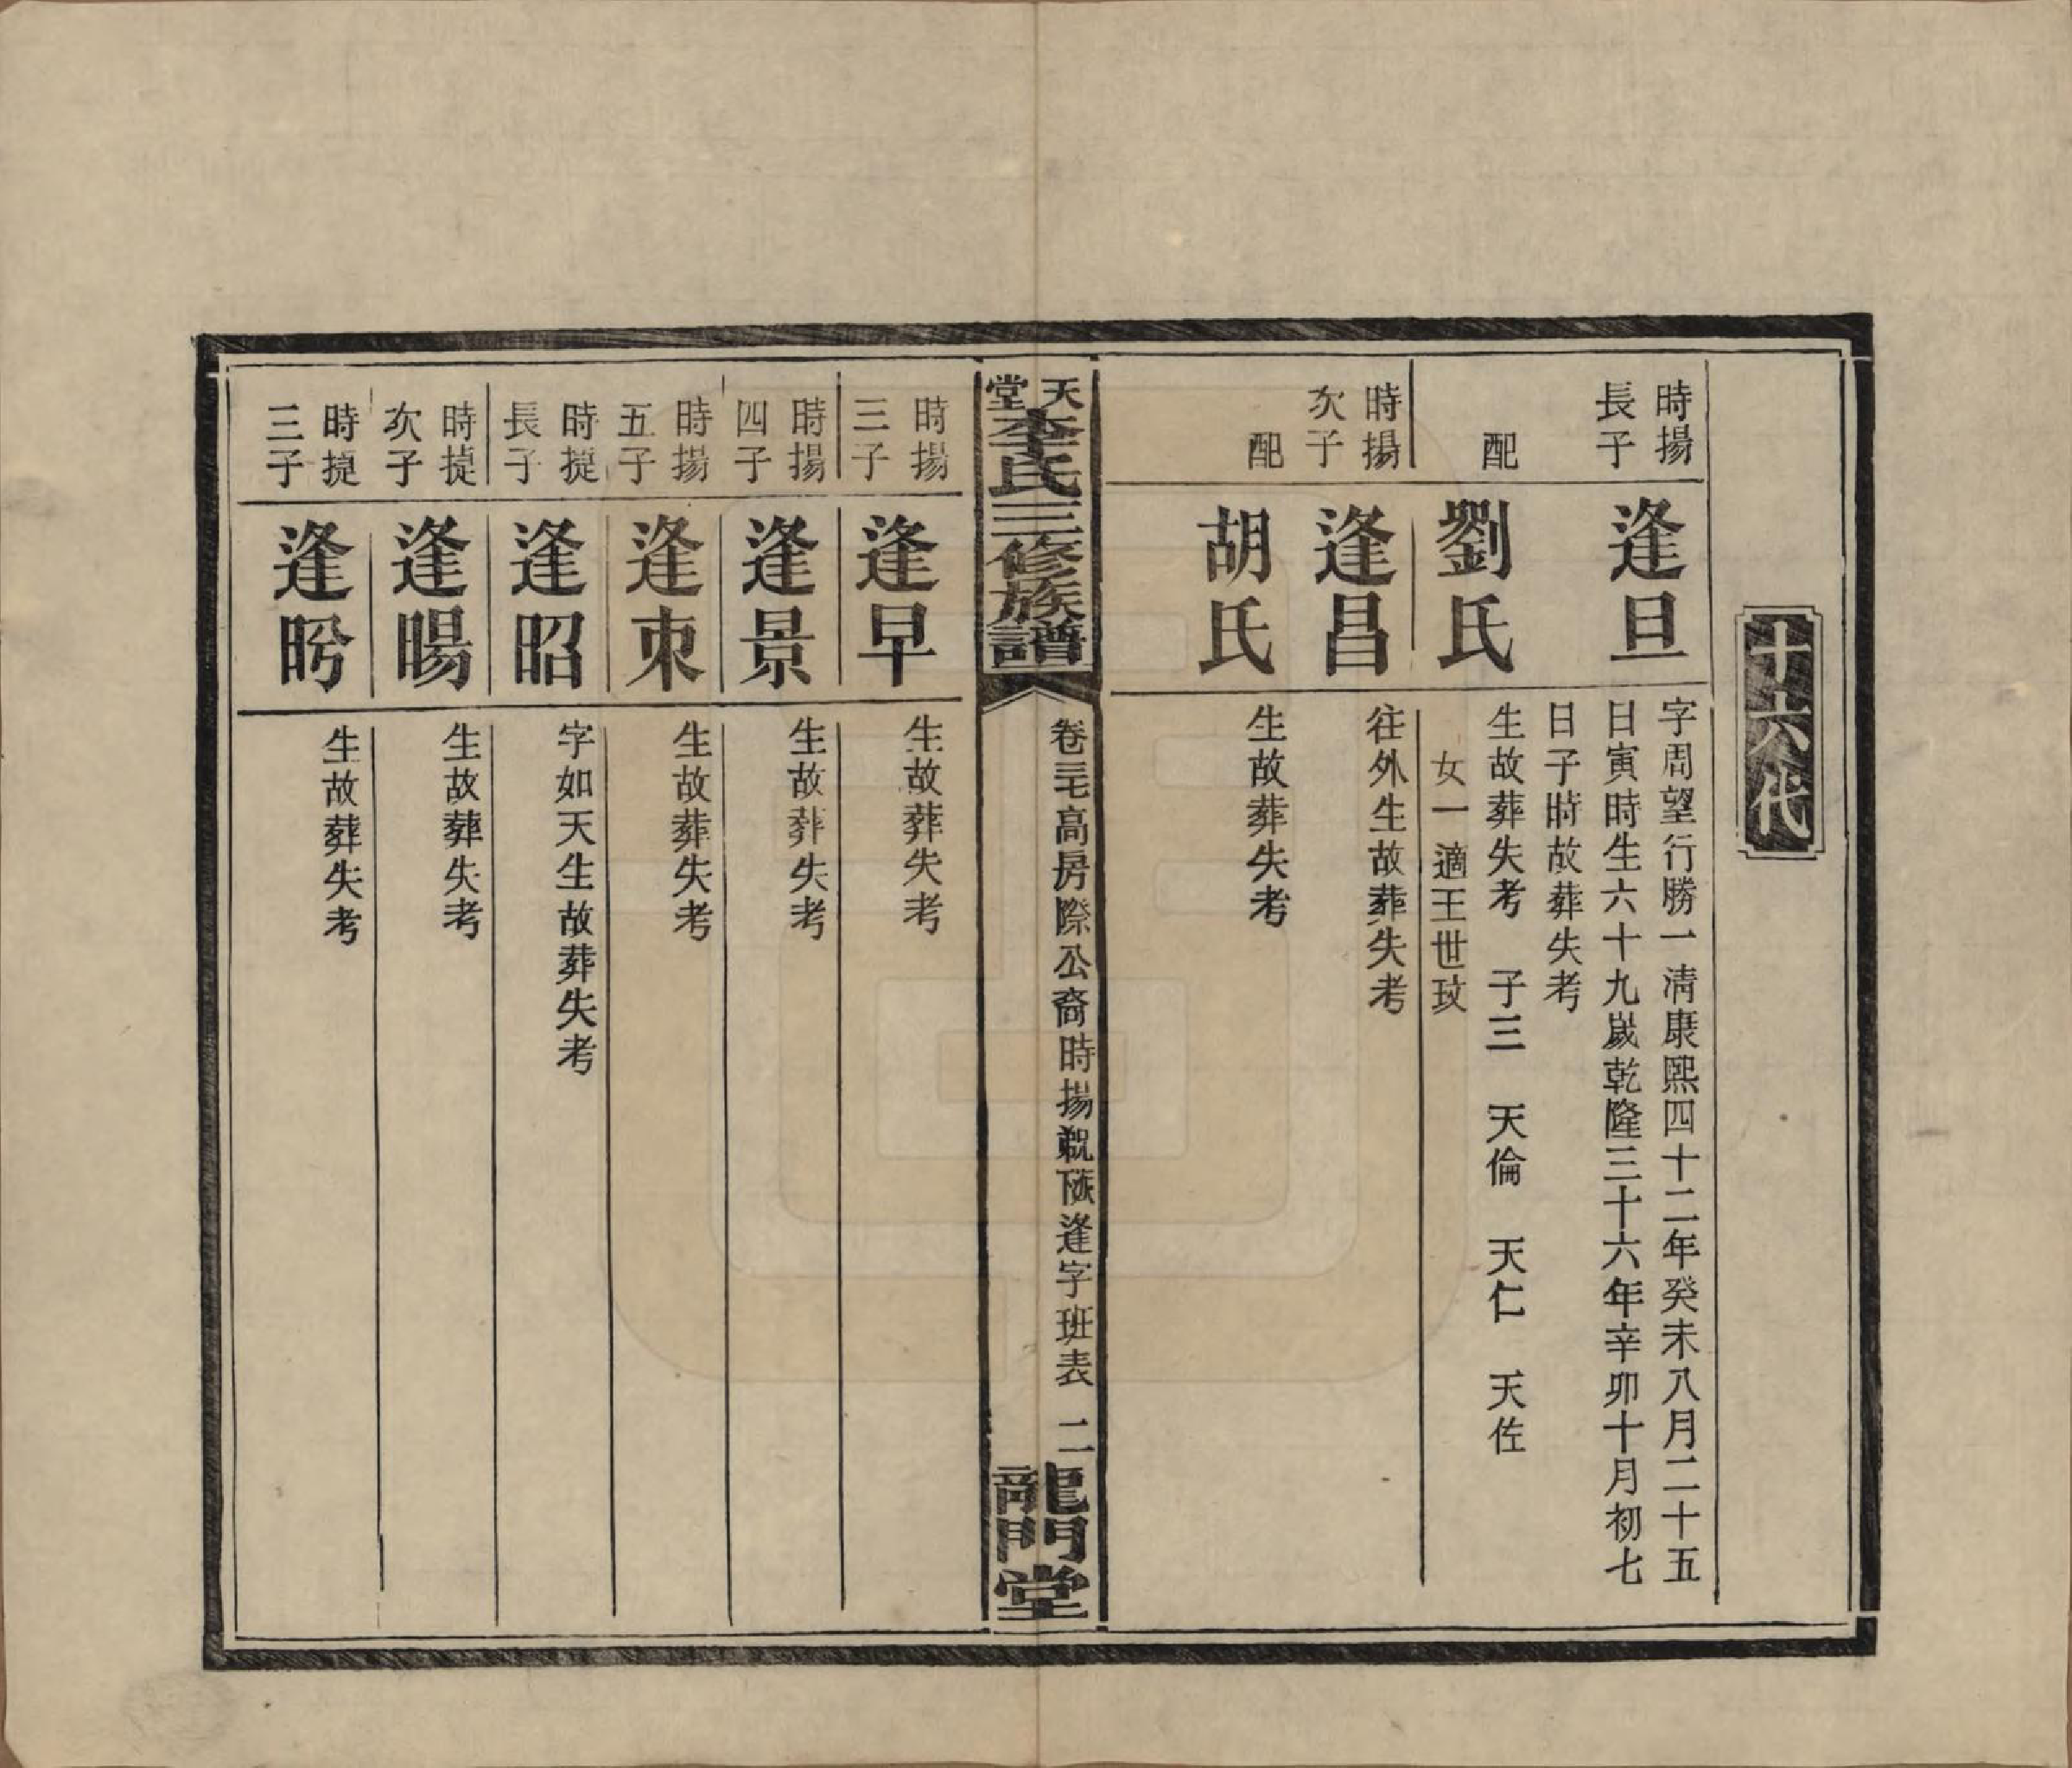 十六代
時揚
長子
逢旦
字周望行勝一清康熙四十二年癸未八月二十五
日寅時生六十九歲乾隆三十六年辛卯十月初七
日子時故葬失考
配
劉氏
生故葬失考 子三 天倫 天仁 天佐
女一適王世玟
時揚
次子
逢昌
往外生故葬失考
配
胡氏
生故葬失考
天堂李氏三修族譜
卷三七高房際公裔時揚 逢字班表 二
龍門堂
時揚
三子
逢早
生故葬失考
時揚
四子
逢景
生故葬失考
時揚
五子
逢東
生故葬失考
時提
長子
逢昭
字如天生故葬失考
時提
次子
逢暘
生故葬失考
時提
三子
逢昐
生故葬失考